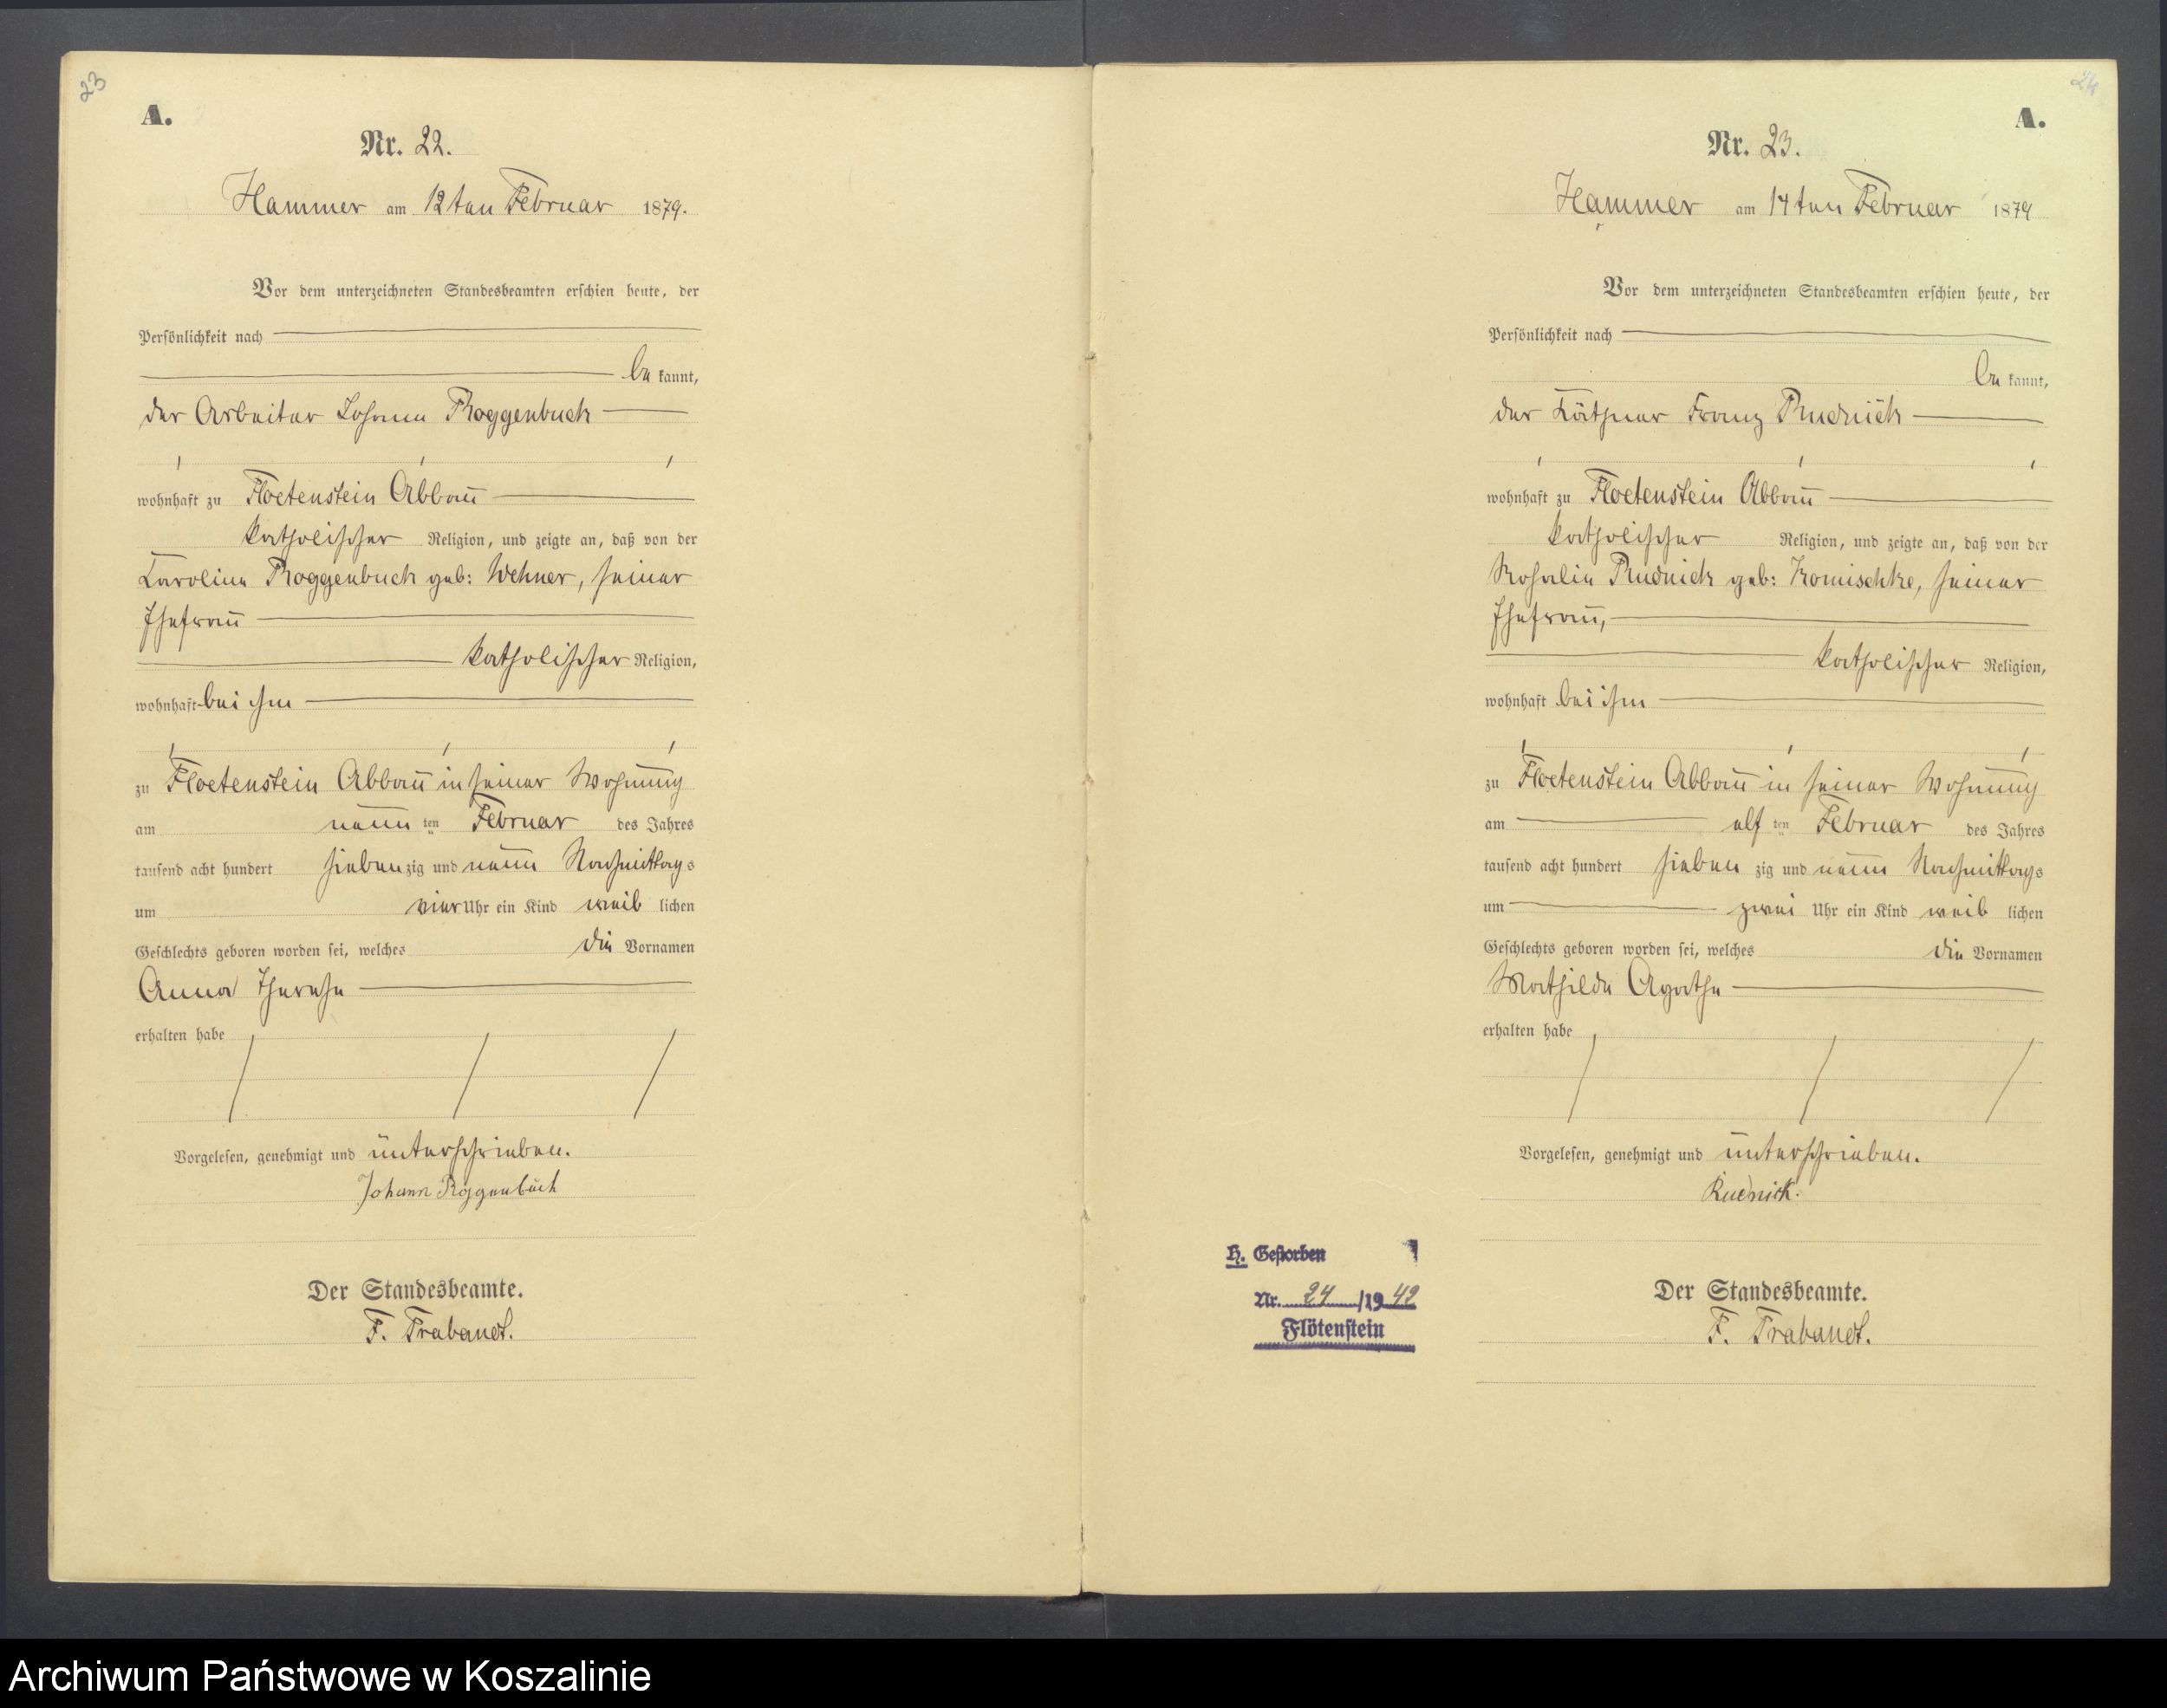 23
A.
Nr. 22.
Hammer am 12ten Februar 1879.
Vor dem unterzeichneten Standesbeamten erschien heute, der
Persönlichkeit nach
be kannt,
der Arbeiter Johann Roggenbuck
wohnhaft zu Floetenstein Abbau
katholischer Religion, und zeigte an, daß von der
Karoline Roggenbuck geb: Wehner, seiner
Ehefrau
katholischer Religion,
wohnhaft bei ihm
zu Floetenstein Abbau in seiner Wohnung
am neun ten Februar des Jahres
tausend acht hundert sieben zig und neun Nachmittags
um vier Uhr ein Kind weib lichen
Geschlechts geboren worden sei, welches die Vornamen
Anna Therese
erhalten habe
Vorgelesen, genehmigt und unterschrieben.
Johann Roggenbuck
Der Standesbeamte.
F. Trabandt.
24
A.
Nr. 23.
Hammer am 14ten Februar 1879
Vor dem unterzeichneten Standesbeamten erschien heute, der
Persönlichkeit nach
be kannt,
der Käthner Franz Rudnick
wohnhaft zu Floetenstein Abbau
katholischer Religion, und zeigte an, daß von der
Rosalie Rudnick geb: Komischke, seiner
Ehefrau,
katholischer Religion,
wohnhaft bei ihm
zu Floetenstein Abbau in seiner Wohnung
am elf ten Februar des Jahres
tausend acht hundert sieben zig und neun Nachmittags
um zwei Uhr ein Kind weib lichen
Geschlechts geboren worden sei, welches die Vornamen
Mathilde Agathe
erhalten habe
Vorgelesen, genehmigt und unterschrieben.
Rudnick.
Der Standesbeamte.
F. Trabandt.
H. Gestorben
Nr. 24 /19 42
Flötenstein
Archiwum Państwowe w Koszalinie